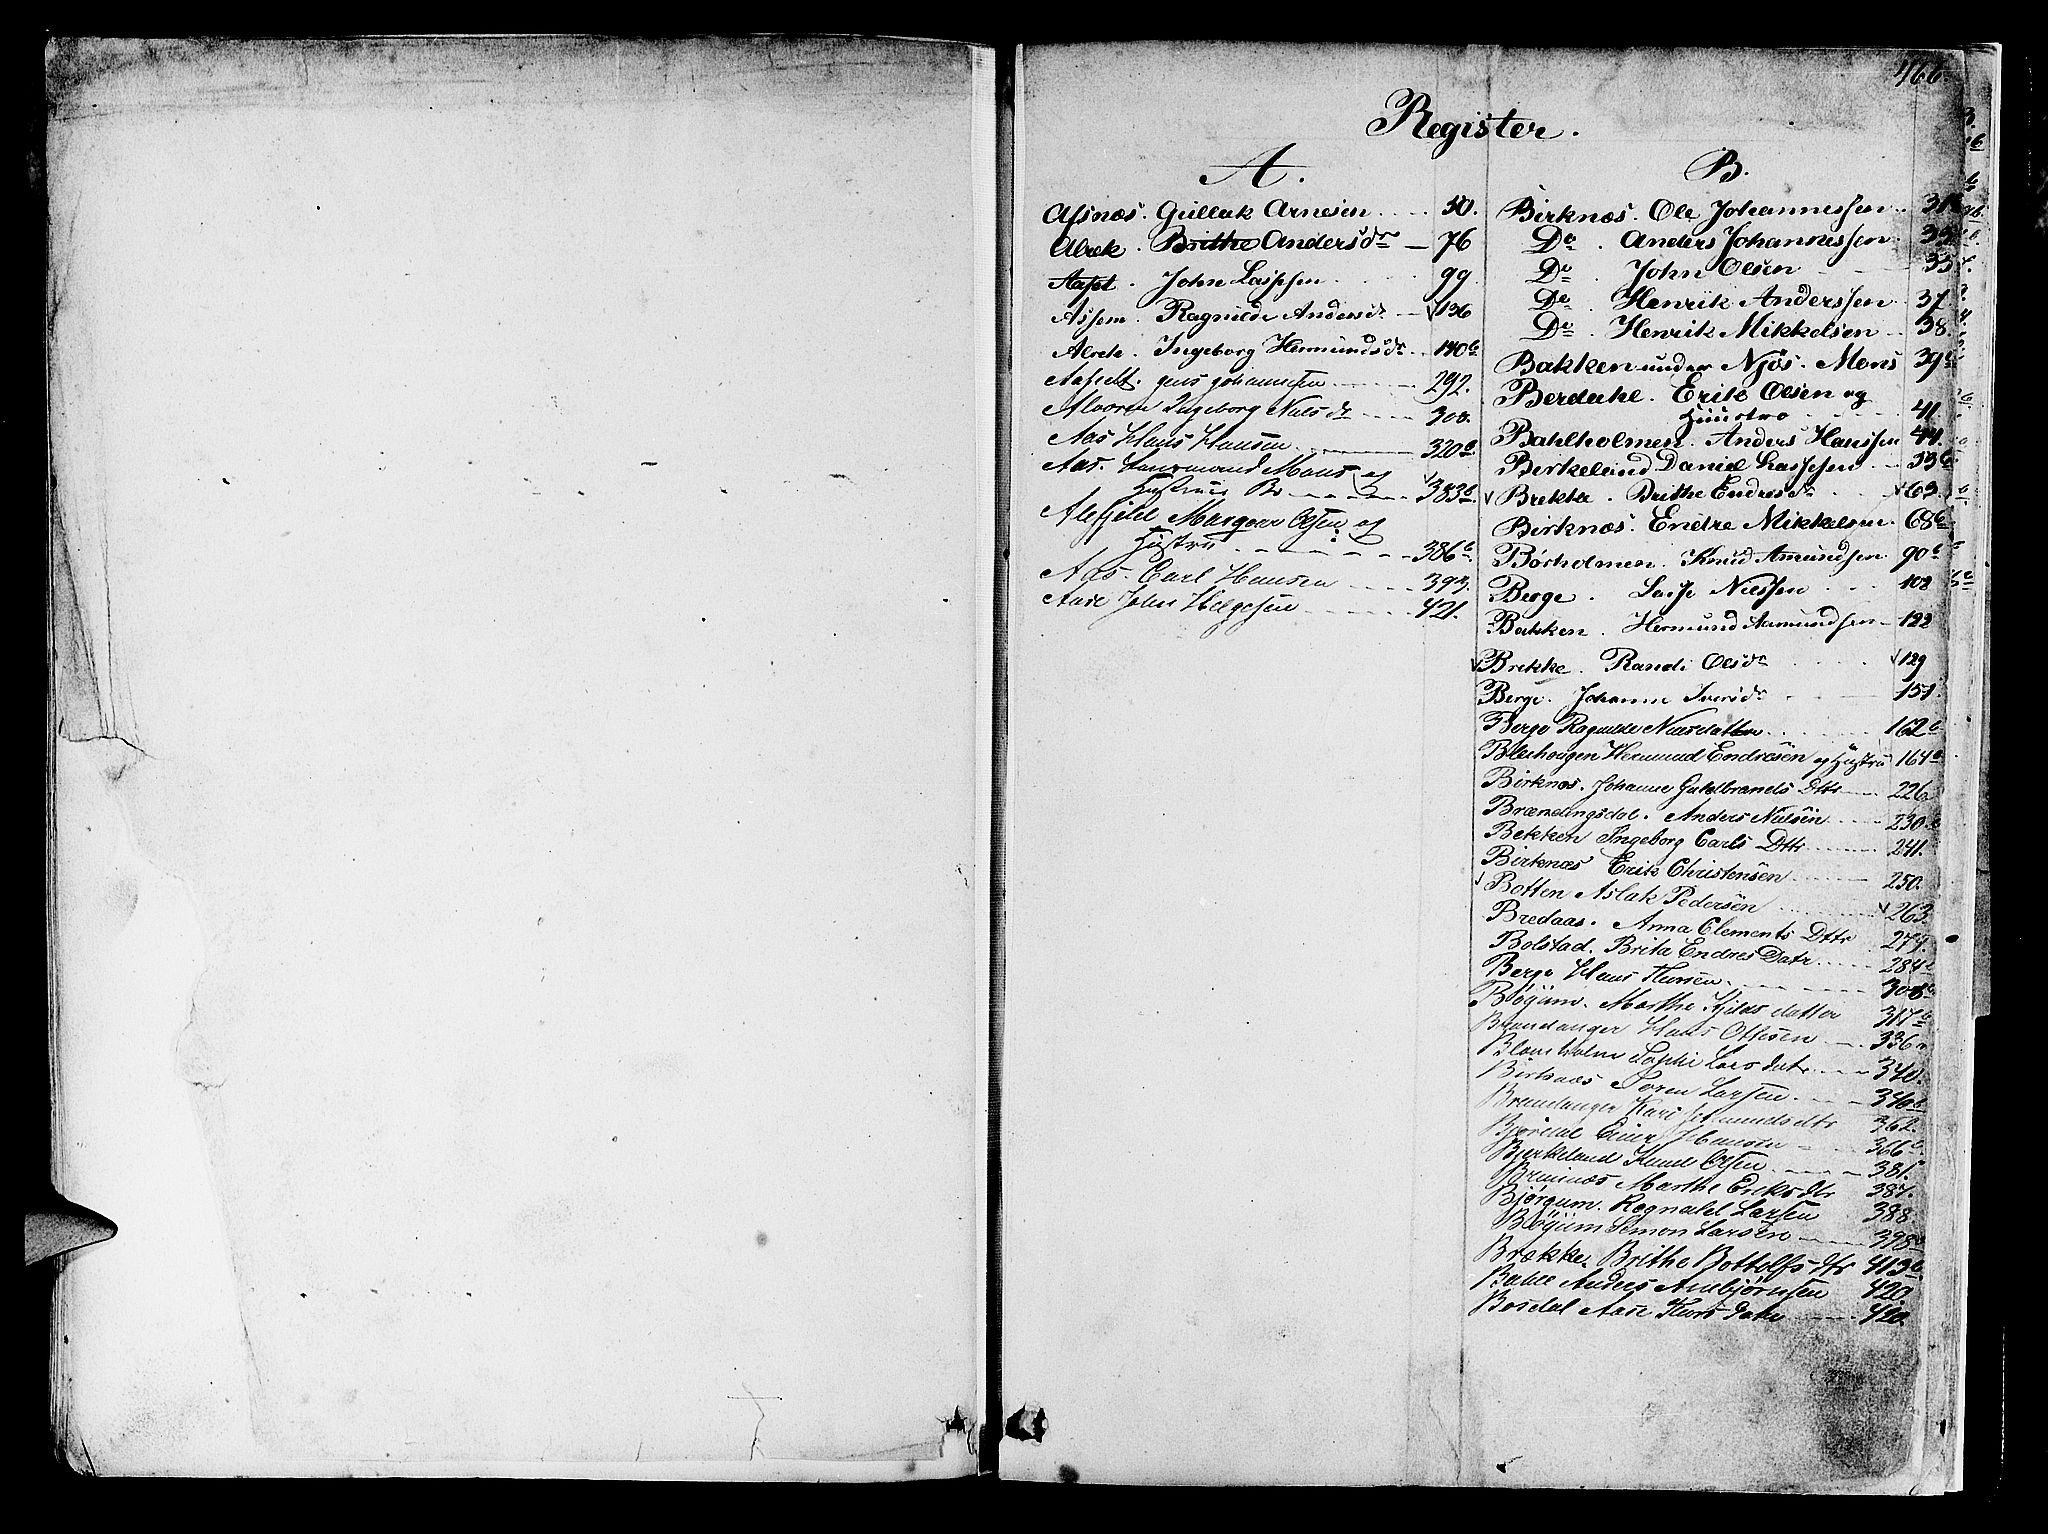 466.
Register.
A.
Afsnæs. Gullak Arnesen 50.
Alrek. Brithe Andersdr 76
John Lassesen 99
Ragnilde Andersdr 136
Alrek. Ingeborg Hermundsdr 140b
Jens Johannesen 292.
Ingeborg Nielsdr 300.
Aas Hans Hansen 320b
Aas. Mons og
Hustrue 383b
Olsen og
Hustru 386b
Aas. Carl Hansen 393.
Aase John Helgesen 421.
B.
Birknæs. Ole Johannessen
Do. Anders Johannessen
Do. John Olsen
Do. Henrik Anderssen 37.
Do. Henrik Mikkelsen 38.
Bakken under Njøs. Mons
Berdahl. Erik Olsen og
Hustro 41.
Bahlholmen. Anders Hanssen 44.
Birkeland Daniel Lassesen
Brekke. Brithe Endresdr 63.
Birknæs. Endre Mikkelsen 68b
Børholmen. Knud Amundsen 90b
Berge. Lasse Nielsen 102
Bakken. Hermund Aamundsen 122
Brekke. Randi Olsdr 129
Berge. Johanne Iversdr 151.
Berge Ragnilde Nielsdatter 162b
Blechovgen Hermund Endresen og Hustru 164b
Birknæs. Johanne Guldbrands Dttr 226
Brændingsdal. Anders Nielsen 230.
Bekken Ingeborg Carls Dttr 241.
Birknæs Erik Christensen 250.
Botten Aslak Pedersen 263.
Bredaas. Anna Clements Dttr
Bolstad. Brita Endres Datr 284b
Berge Hans Iversen
Bøgum. Marthe Kjelds datter 317b
Brandanger Hans Ottesen 336
Sophi Lars datr 340.
Birknæs Søren Larsen 346b
Brandanger Kari 362.
Einer Hansen 366b
Bjerkeland Knud Olsen 381.
Marthe Eriks dtr 387.
Bjørgum. Ragnald Larsen 388
Bøgum Simon Larsen 398b
Brække. Brithe Bottolfs dtr 413b
Bahle Anders Ambjørnsen 420.
Bosdal Aase Iversdatter 420.